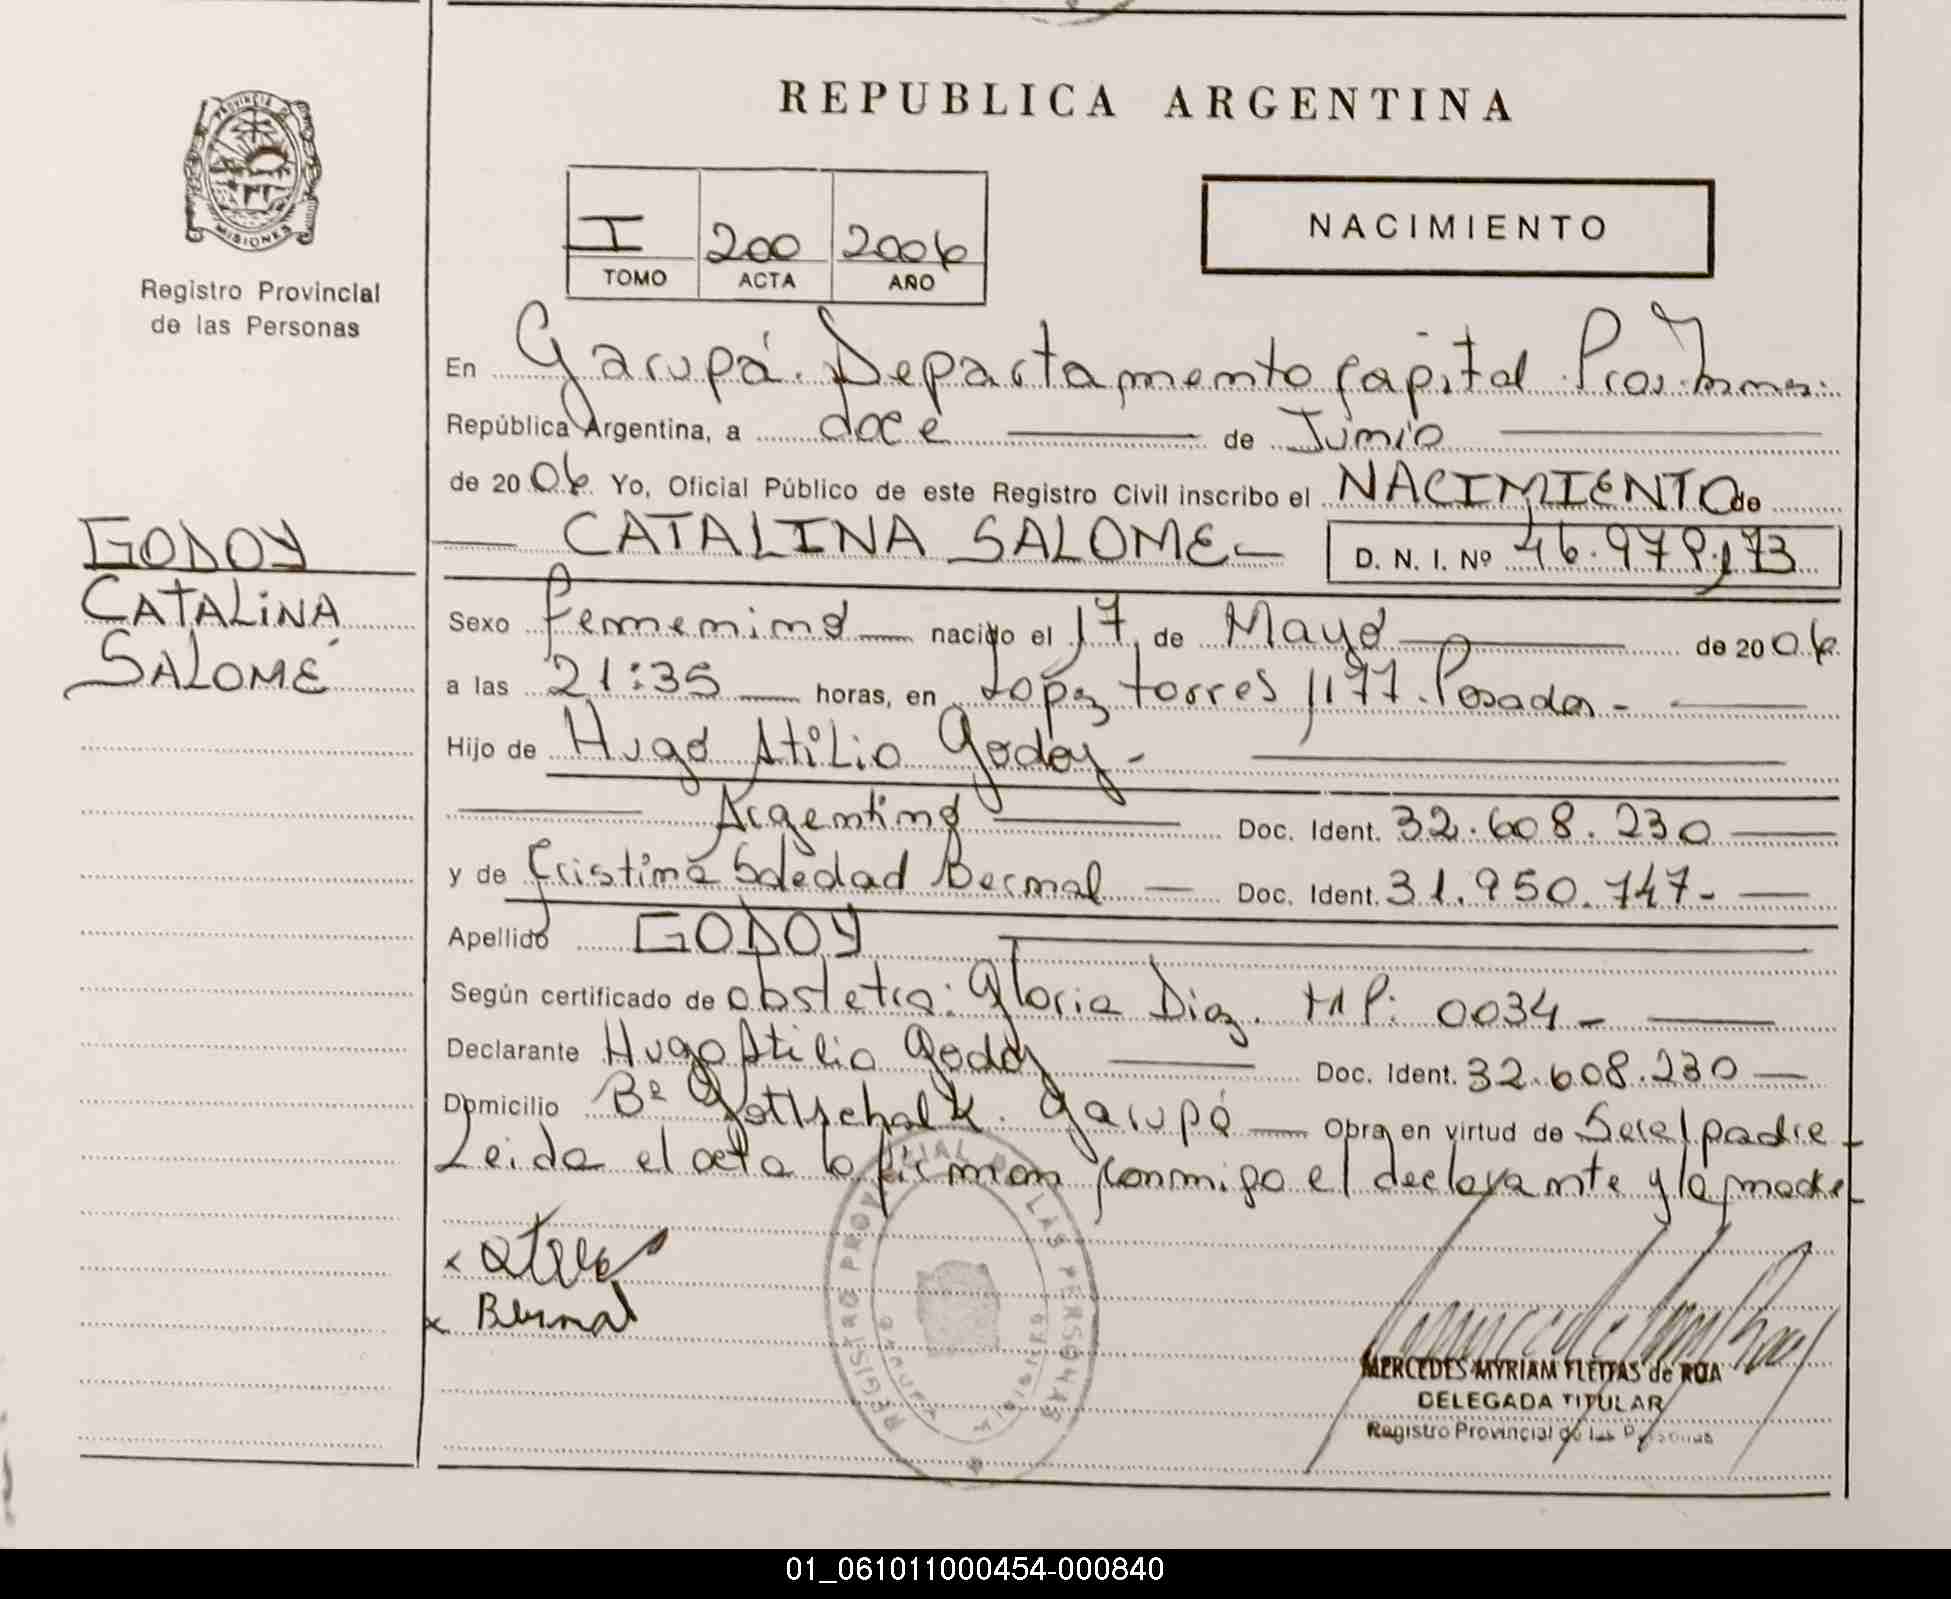 REPUBLICA ARGENTINA
PROVINCIA DE MISIONES
Registro Provincial
de las Personas
I 200 2006
TOMO ACTA AÑO
NACIMIENTO
GODOY
CATALINA
SALOMÉ
En Garupá. Departamento Capital
República Argentina, a doce de Junio
de 2006 Yo, Oficial Público de este Registro Civil inscribo el NACIMIENTO de
CATALINA SALOME D. N. I. Nº
Sexo femenino nacido el 17 de Mayo de 2006
a las 21:35 horas, en López torres 1177. Posadas -
Hijo de Hugo Atilio Godoy -
Argentino Doc. Ident. 32.608.230
y de Cristina Soledad Bernal Doc. Ident. 31.950.747-
Apellido GODOY
Según certificado de obstetra: Gloria Diaz. MP: 0034-
Declarante Hugo Atilio Godoy Doc. Ident. 32.608.230
Domicilio Bº Gottschalk. Garupá Obra en virtud de Ser el padre -
Leida el acta la firman conmigo el declarante y la madre -
x
x Bernal
REGISTRO PROVINCIAL DE LAS PERSONAS
MERCEDES MYRIAM FLEITAS de ROA
DELEGADA TITULAR
Registro Provincial de las Personas
01_061011000454-000840